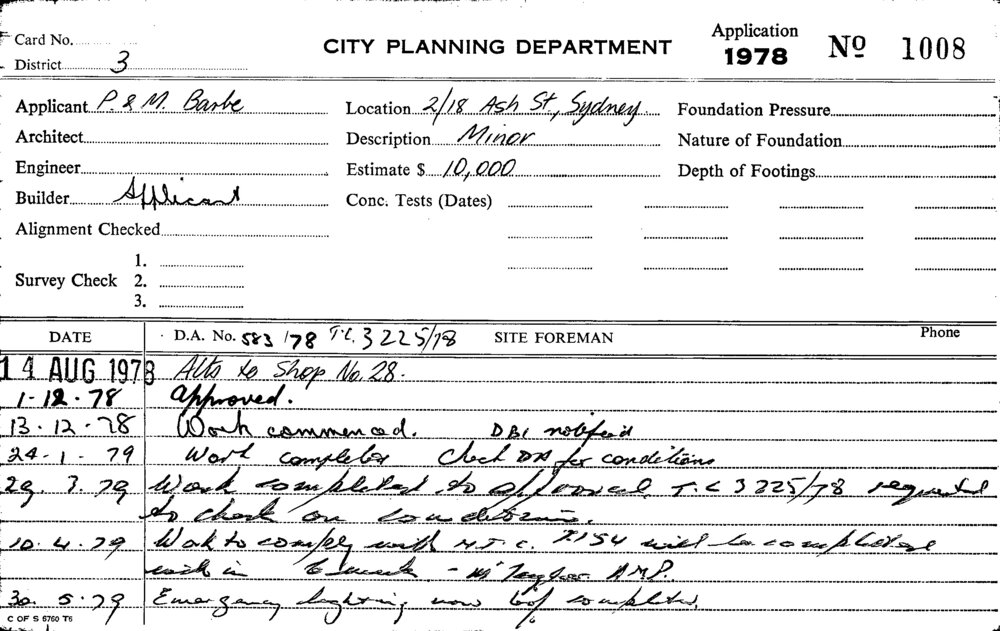 Card No.
District 3
CITY PLANNING DEPARTMENT
Application
1978
Nº 1008
Applicant P. & M. Barbe
Location 2/18 Ash St, Sydney
Foundation Pressure
Architect
Description Minor
Nature of Foundation
Engineer
Estimate $ 10,000
Depth of Footings
Builder Applicant
Conc. Tests (Dates)
Alignment Checked
1.
Survey Check 2.
3.
DATE D.A. No. 583/78 T.C. 3225/78 SITE FOREMAN Phone
14 AUG 1978 Alts to Shop No. 28.
1-12-78 Approved.
13-12-78 Work commenced. DBI notified
24-1-79 Work completed Check DA for conditions
29.3.79 Work completed to approval T.C 3225/78 requested
to check on conditions.
10.4.79 Work to comply with will be completed
within 6 weeks - Mr Taylor A.M.P.
30.5.79 Emergency lighting now completed.
C OF S 6760 T6